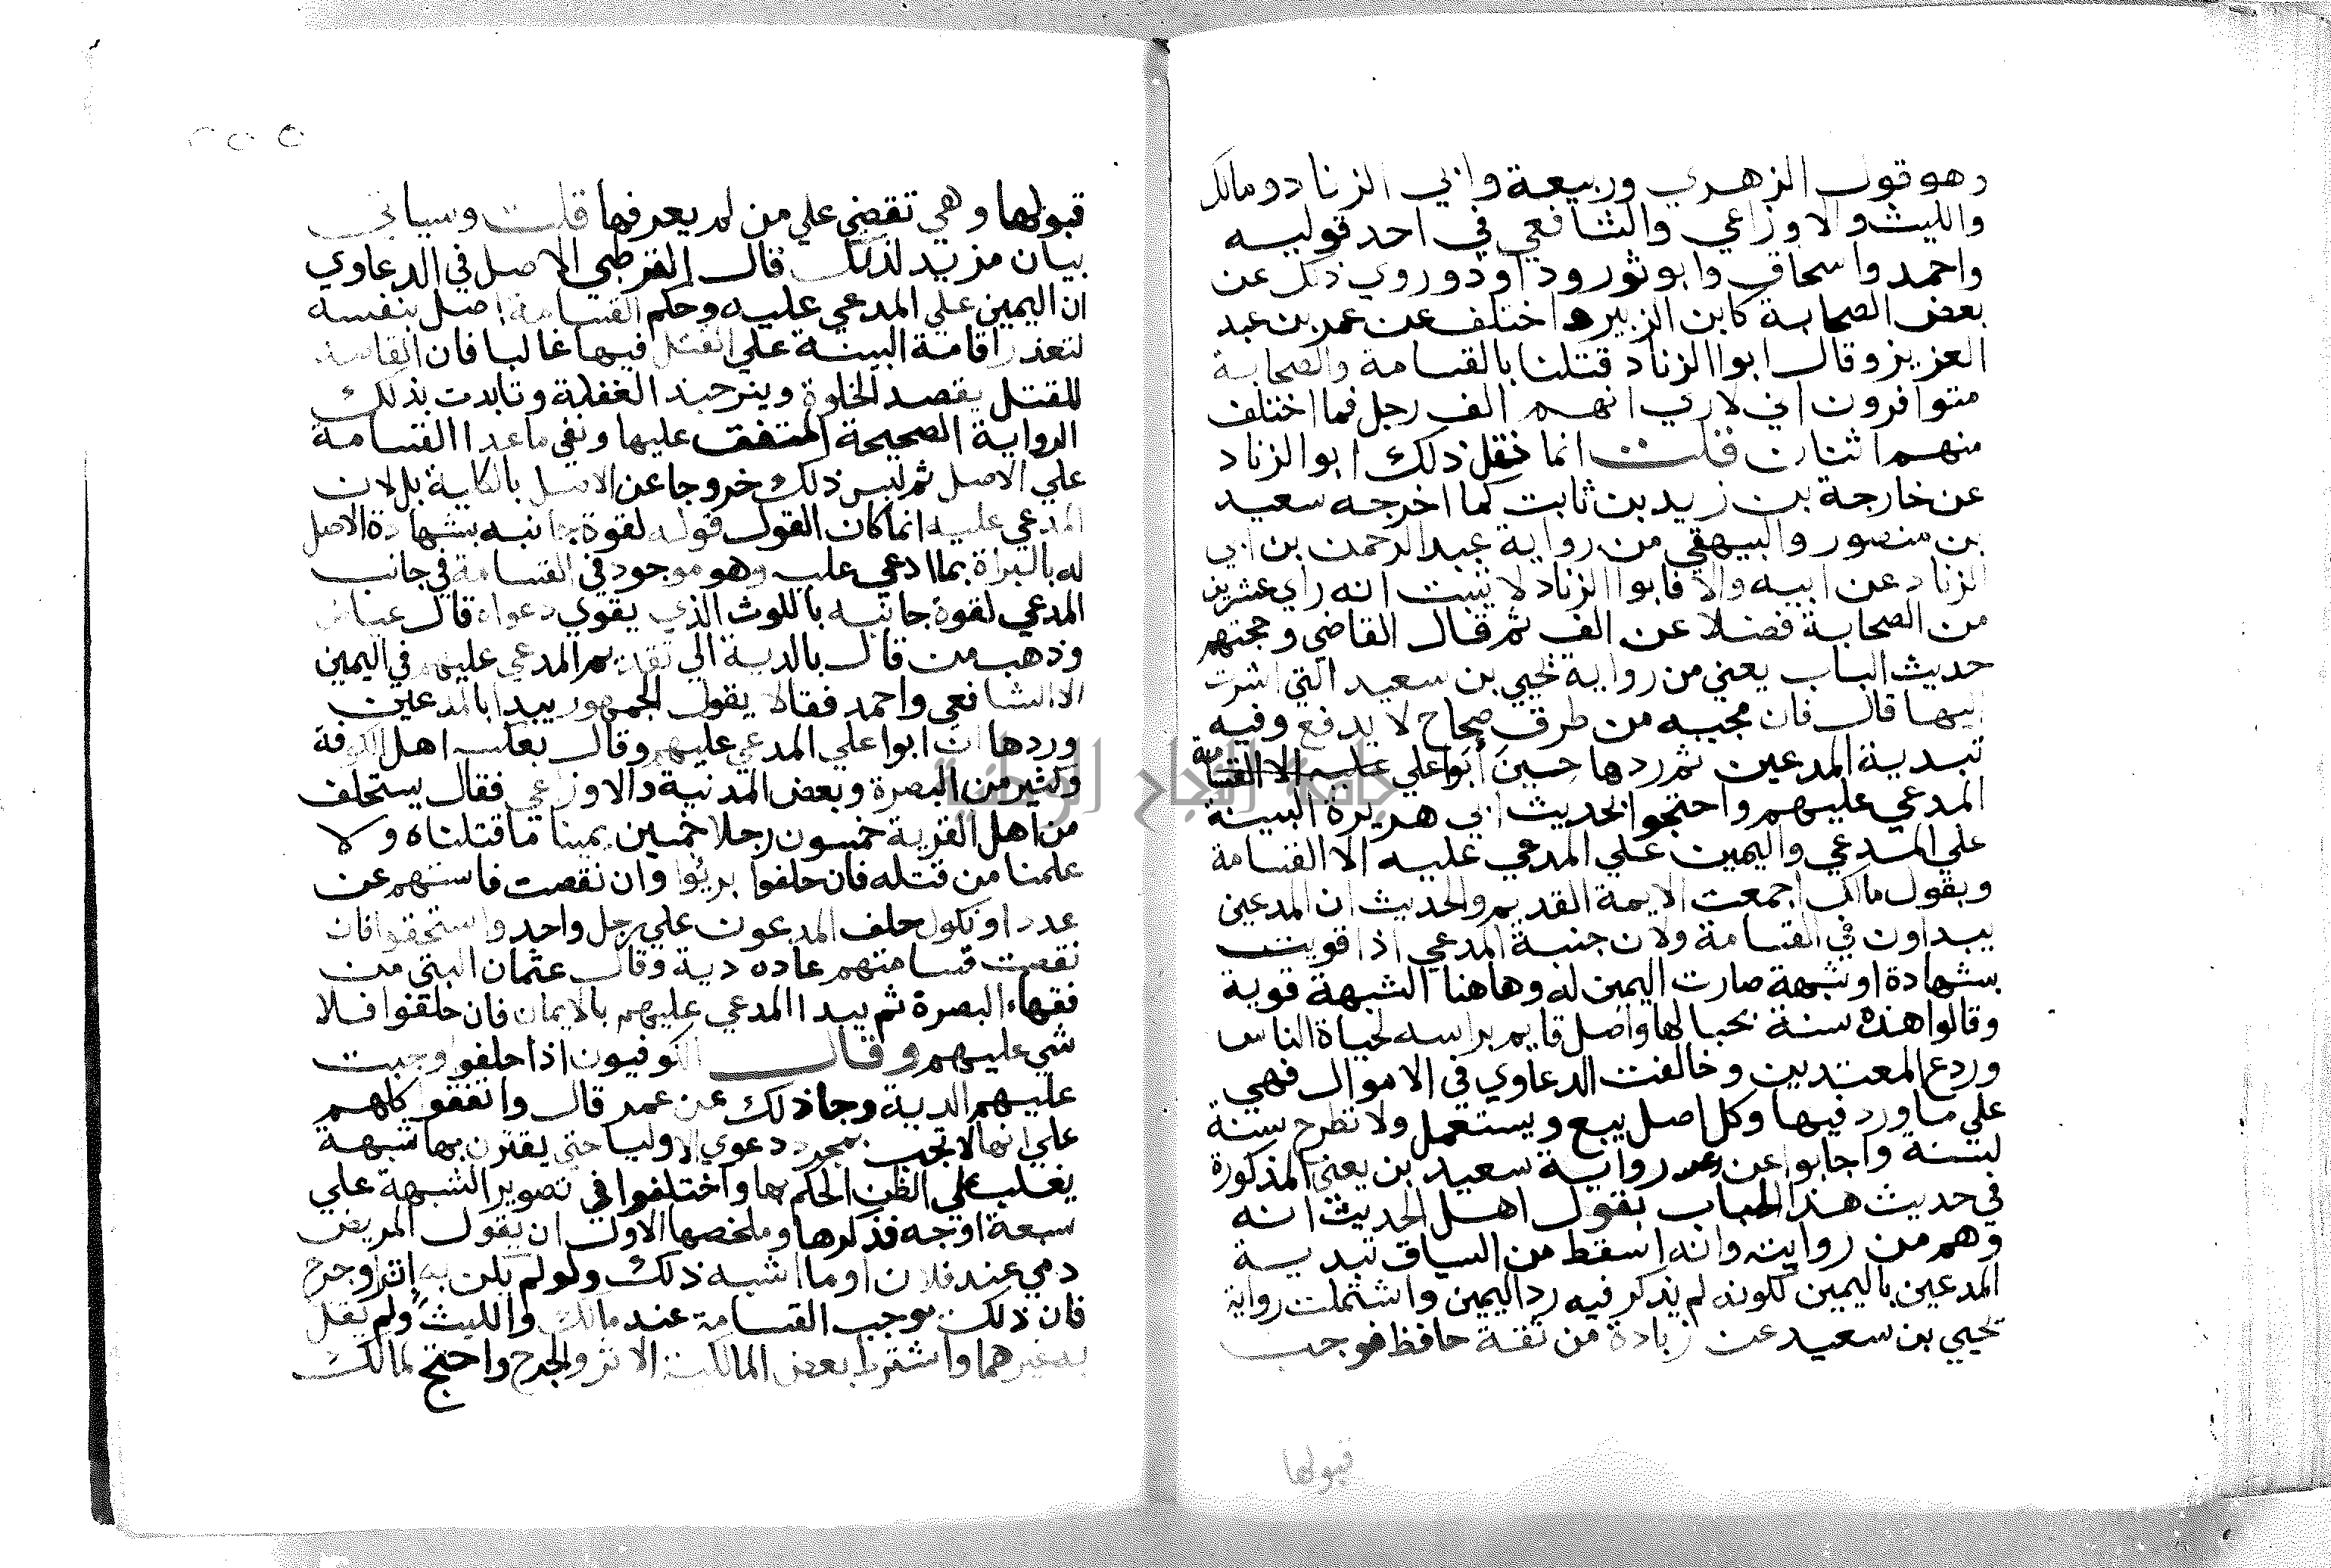 وهو قول الزهري وربيعة وابي الزناد ومالك
والليث والاوزاعي والشافعي في احد قوليه
واحمد واسحاق وابو ثور وداود وروي ذلك عن
بعض الصحابة كابن الزبير واختلف عن عمر بن عبد
العزيز وقال ابوا الزناد قتلنا بالقسامة والصحابة
متوافرون اني لاري انهم الف رجل فما اختلف
منهم اثنان قلت انما نقل ذلك ابوا الزناد
عن خارجة بن زيد بن ثابت كما اخرجه سعيد
بن منصور والبيهقي من رواية عبد الرحمن بن ابي
الزناد عن ابيه والا فابوا الزناد لا يثبت انه راي عشرين
من الصحابة فضلا عن الف ثم قال القاضي وحجتهم
حديث الباب يعني من رواية يحيي بن سعيد التي اشرت
اليها قال فان مجيه من طرق صحاح لا يدفع وفيه
تبدية المدعين ثم ردها حين أبوا علي عليه الا القسامة
المدعي عليهم واحتجوا بحديث ابي هريرة البينة
علي المدعي واليمين علي المدعي عليه الا القسامة
وبقول مالك اجمعت الايمة القديم والحديث ان المدعين
يبداون في القسامة ولان جنبة المدعي اذا قويت
بشهادة او شبهة صارت اليمين له وهاهنا الشبهة قوية
وقالوا هذه سنة بحيالها واصل قايم براسه لحياة الناس
وردع المعتدين وخالفت الدعاوي في الاموال فهي
علي ما ورد فيها وكل اصل يبع ويستعمل ولا تطرح سنة
لسنة واجابوا عن رواية سعيد بن يعني المذكورة
في حديث هذا الباب بقول اهل الحديث انه
وهم من روايته وانه اسقط من السياق تبدية
المدعين باليمين لكونه لم يذكر فيه رد اليمين واشتملت رواية
يحيي بن سعيد عن زيادة من ثقة حافظ فوجب
قبولها
قبولها وهي تقضي علي من لم يعرفها قلت وسياتي
بيان مزيد لذلك قال القرطبي الاصل في الدعاوي
ان اليمين علي المدعي عليه وحكم القسامة اصل بنفسه
لتعذر اقامة البينة علي القتل فيها غالبا فان القاصد
للقتل يقصد الخلوة ويترصد الغفلة وتايدت بذلك
الرواية الصحيحة المتفق عليها ونفي ما عدا القسامة
علي الاصل ثم ليس ذلك خروجا عن الاصل بالكلية بل لان
المدعي عليه انما كان القول قوله لقوة جانبه بشهادة الاصل
له بالبراة بما ادعي عليه وهو موجود في القسامة في جانب
المدعي لقوة جانبه باللوث الذي يقوي دعواه قال عياض
وذهب من قال بالدية الي تقديم المدعي عليهم في اليمين
الا الشافعي واحمد فقالا يقول الجمهور يبدا بالمدعين
وردها ان ابوا علي المدعي عليهم وقال بعكسه اهل الكوفة
وكثير من البصرة وبعض المدنية والاوزاعي فقال يستحلف
من اهل القرية خمسون رجلا خمسين يمينا ما قتلناه ولا
علمنا من قتله فان حلفوا بريُوا وان نقصت قاسمتهم عن
عدد او نكول حلف المدعون علي رجل واحد واستحقوا فان
نقصت قسامتهم عاده دية وقال عثمان البتي من
فقهاء البصرة ثم يبدا المدعي عليهم بالايمان فان حلفوا فلا
شي عليهم وقال الكوفيون اذا حلفوا وجبت
عليهم الدية وجا ذلك عن عمر قال واتفقوا كلهم
علي انها لا تجب بمجرد دعوي الاوليا حتي يقترن بها شبهة
يغلب علي الظن الحكم بها واختلفوا في تصوير الشبهة علي
سبعة اوجه فذكرها وملخصها الاول ان يقول المريض
دمي عند فلان او ما اشبه ذلك ولو لم يكن به اثر او جرح
فان ذلك يوجب القسامة عند مالك والليث ولم يقل
به غيرهما واشترط بعض المالكية الاثر والجرح واحتج لمالك
جامعة النجاح الوطنية